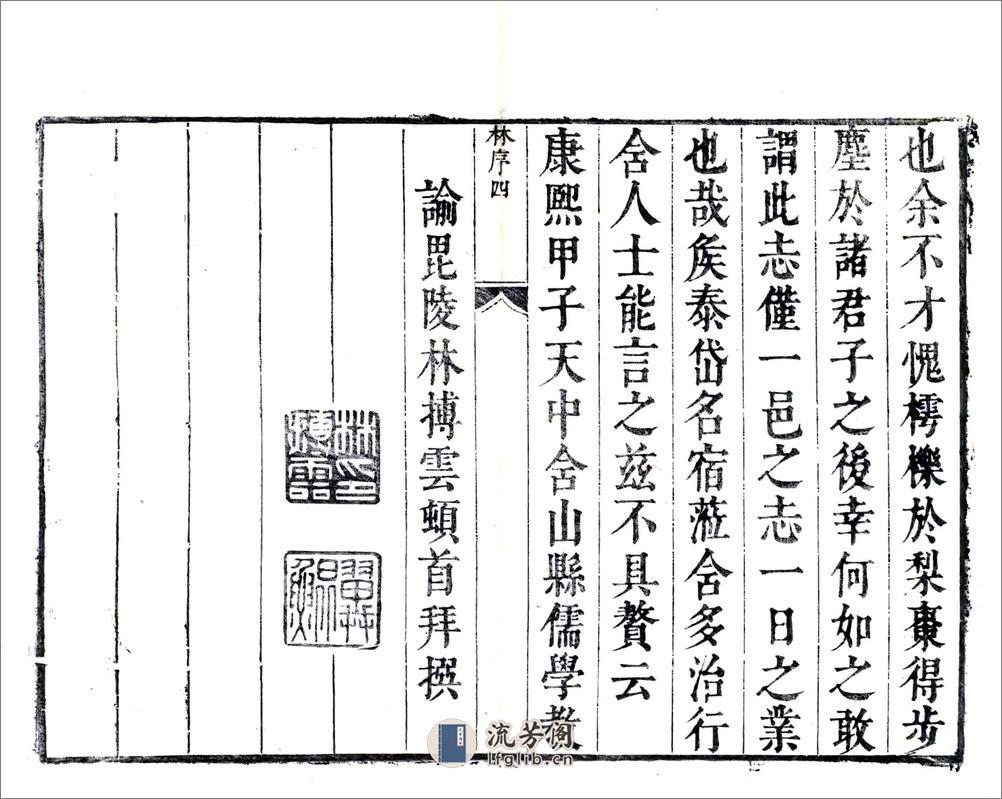 也余不才愧樗櫟於梨棗得步
塵於諸君子之後幸何如之敢
謂此志僅一邑之志一日之業
也哉矦泰岱名宿蒞含多治行
含人士能言之茲不具贅云
康熙甲子天中含山縣儒學教
林序四
諭毘陵林搏雲頓首拜撰
林印搏雲
流芳阁
lfglib.cn